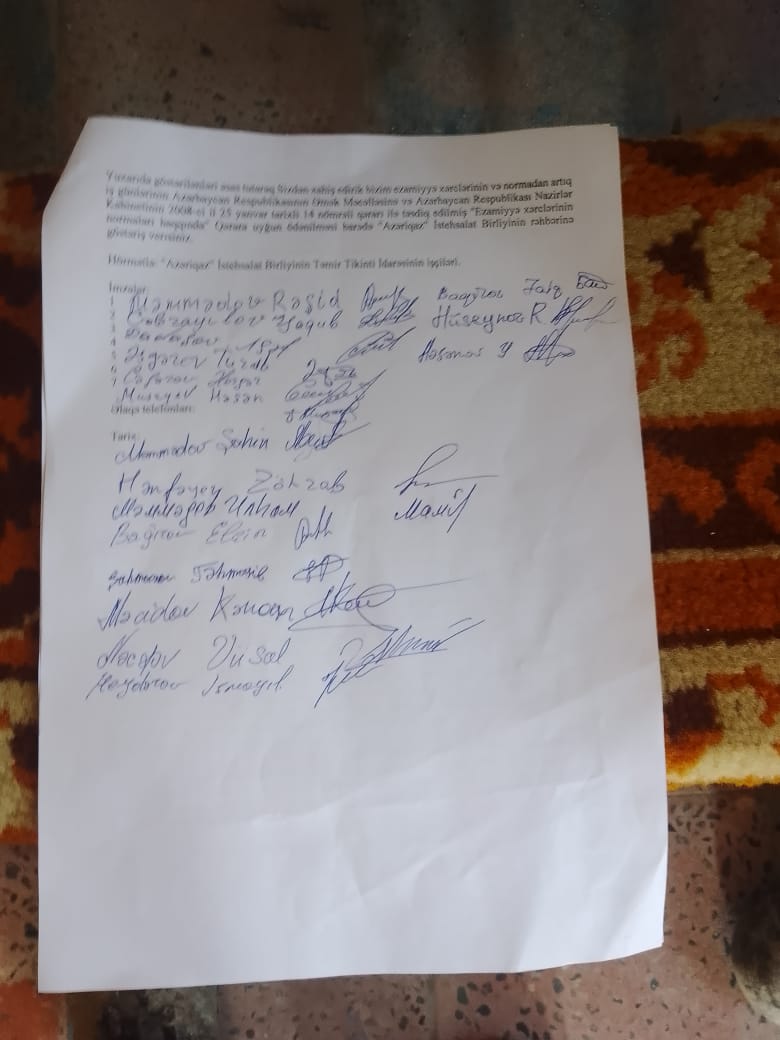 Yuxarıda göstərilənləri əsas tutaraq Sizdən xahiş edirik bizim ezamiyyə xərclərinin və normadan artıq
iş günlərinin Azərbaycan Respublikasının Əmək Məcəlləsinə və Azərbaycan Respublikası Nazirlər
Kabinetinin 2008-ci il 25 yanvar tarixli 14 nömrəli qərarı ilə təsdiq edilmiş "Ezamiyyə xərclərinin
normaları haqqında" Qərara uyğun ödənilməsi barədə "Azəriqaz" İstehsalat Birliyinin rəhbərinə
göstəriş verəsiniz.
Hörmətlə: "Azəriqaz" İstehsalat Birliyinin Təmir Tikinti İdarəsinin işçiləri.
İmzalar:
1 Məmmədov Rəşid Bağırov
2 Cəbrayılov Yaqub Hüseynov R
3
4 Əsgərov Turab Həsənov
5
6 Cəfərov
7 Musayev Həsən
Əlaqə telefonları:
Tarix:
Məmmədov Şahin
Hənfəyev Zöhrab
Мәммәдов Илһам
Bağırov Elçin
Məcidov
Nəcəfov Vüsal
Heydərov İsmayıl